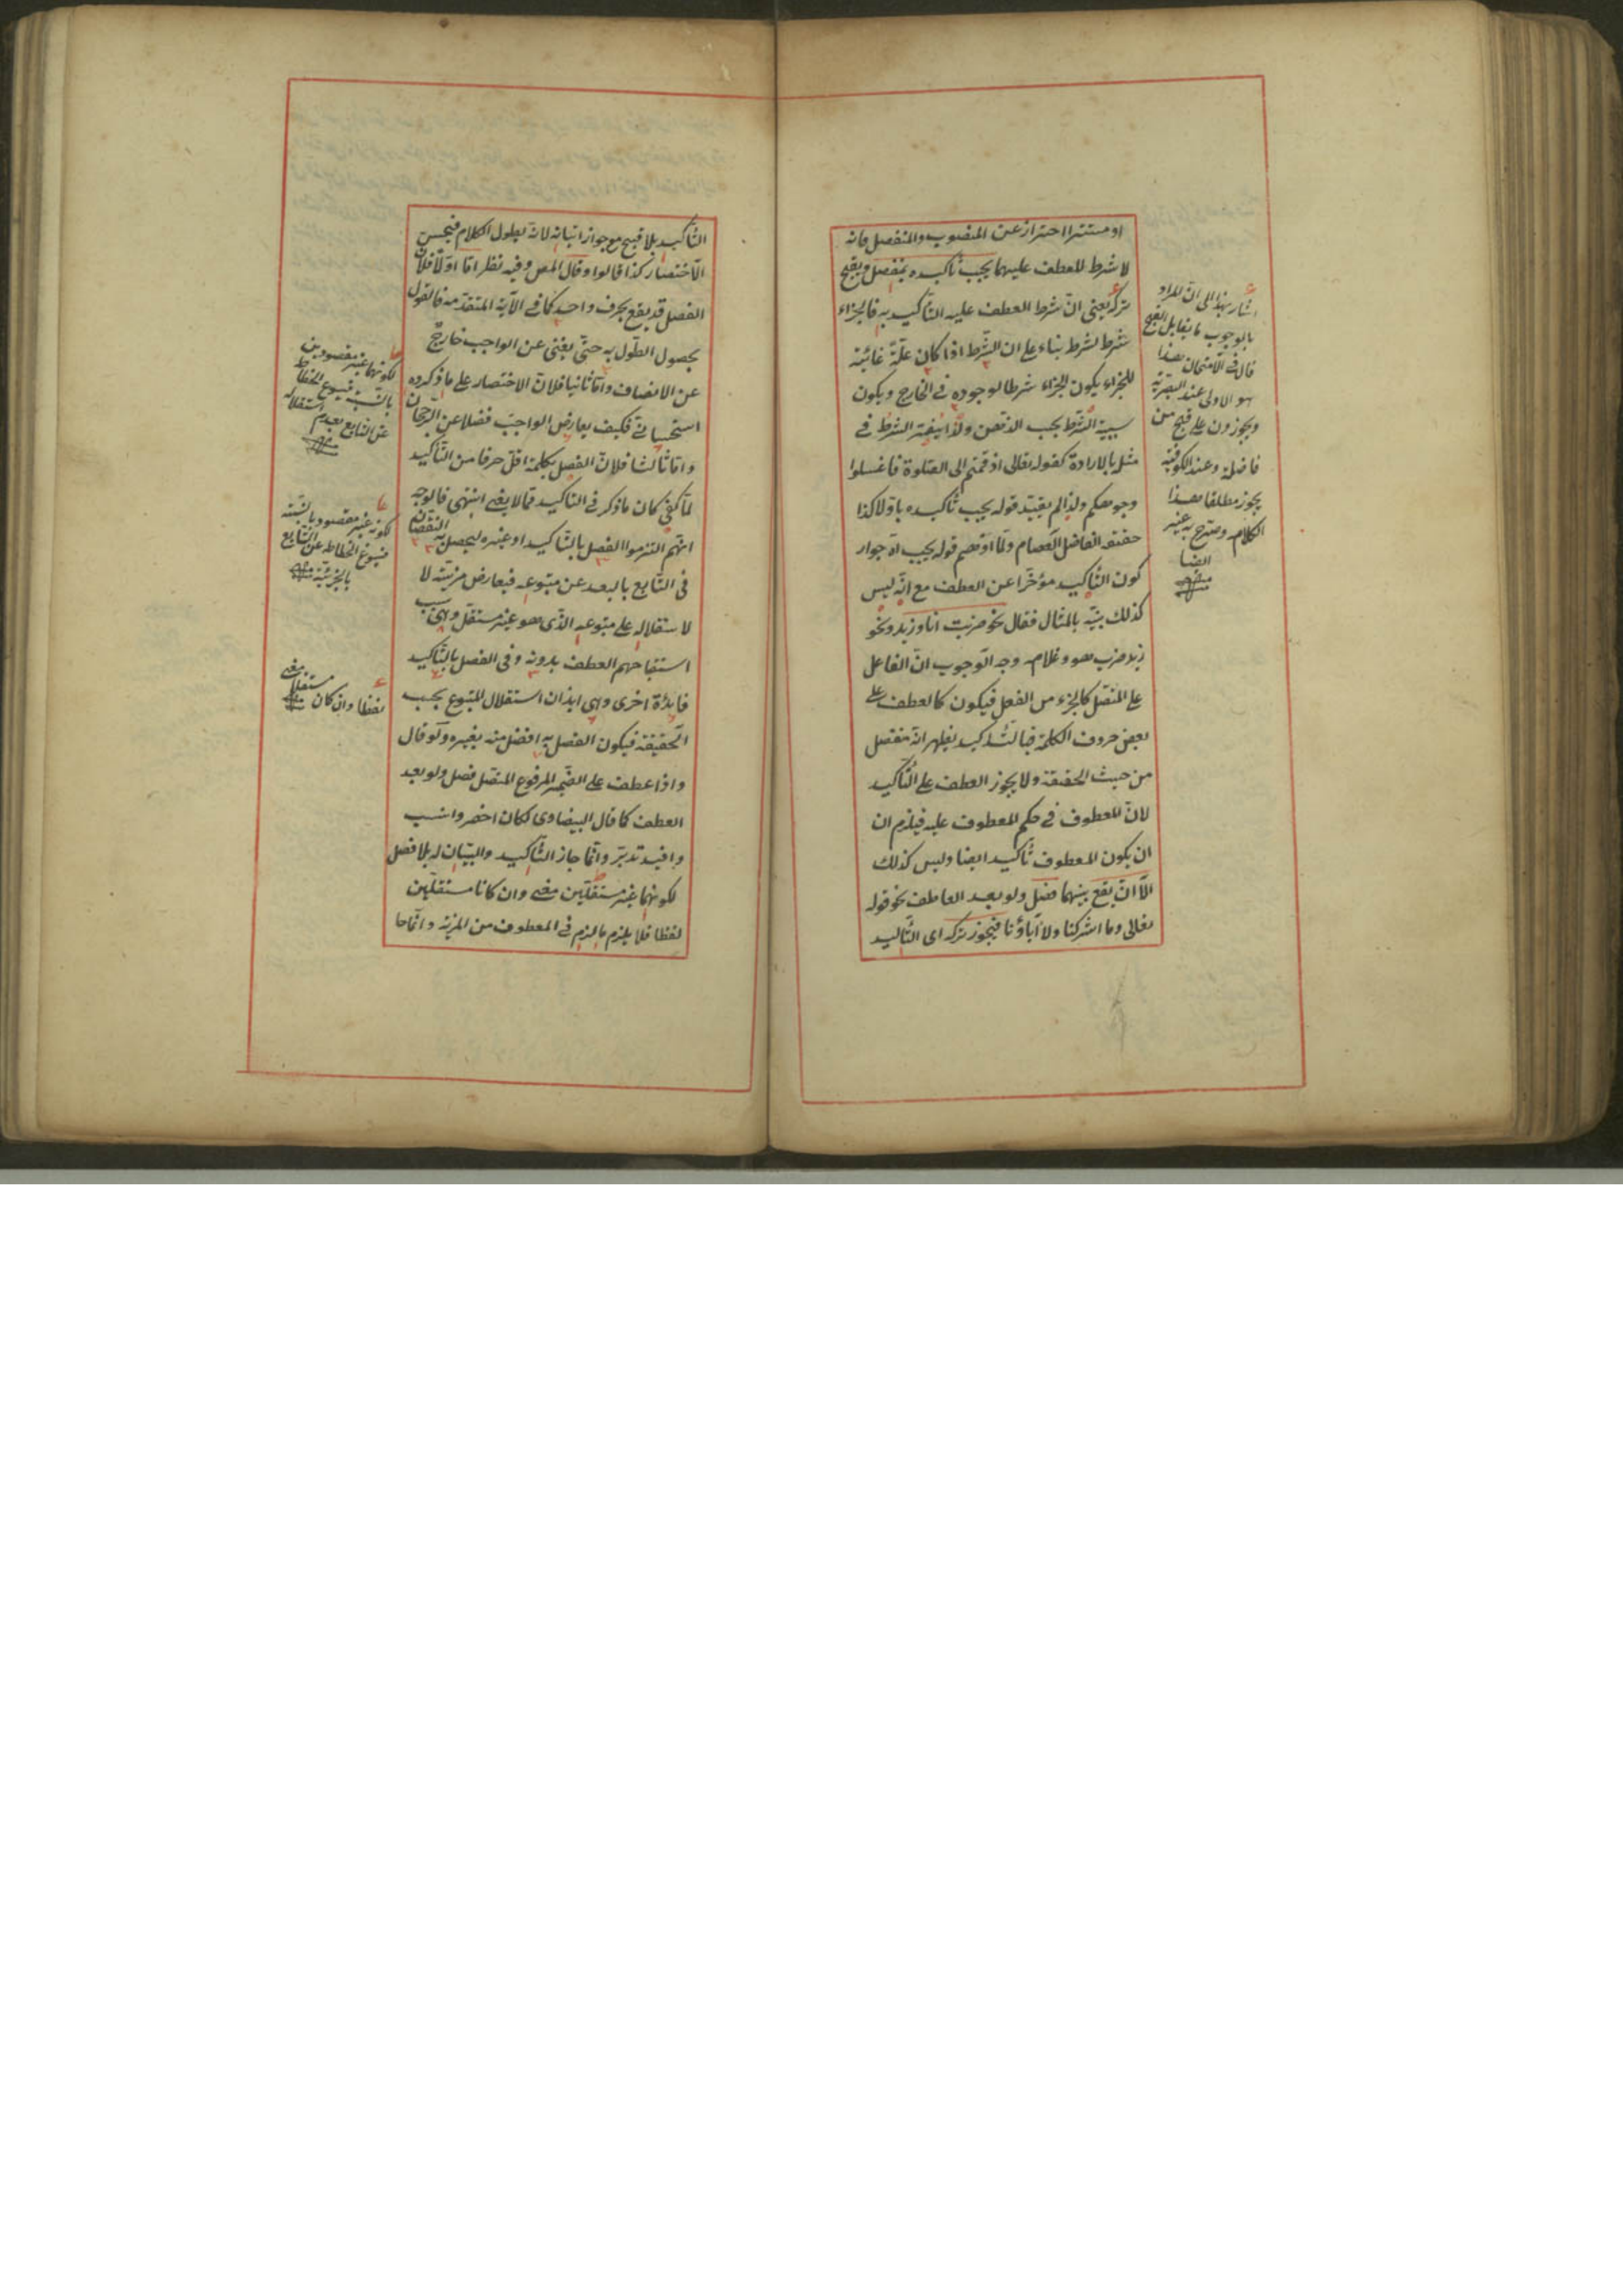 او مستترا احتراز عن المنصوب والمنفصل فانه
لا شرط للعطف عليهما يجب تأكيده بمنفصل ويقبح
تركه يعنى انّ شرط العطف عليه التأكيد به فالجزاء
شرط لشرط بناء على ان الشّرط اذا كان علّة غائيّة
للجزاء يكون الجزاء شرطا لوجوده فى الخارج ويكون
سببيّة الشّرط بحسب الذهن ولذا يفسّر الشرط فى
مثل بالارادة كقوله تعالى اذا قمتم الى الصّلوة فاغسلوا
وجوهكم ولذا لم يقيّد قوله يجب تأكيده باوّلا كذا
حققه الفاضل العصام ولمّا اوهم قوله يجب آه جواز
كون التّأكيد مؤخّرا عن العطف مع انّه ليس
كذلك بيّنه بالمثال فقال نحو ضربت انا وزيد ونحو
زيد ضرب هو وغلامه وجه الوجوب انّ الفاعل
المتّصل كالجزء من الفعل فيكون كالعطف على
بعض حروف الكلمة فبالتّأكيد يظهر انّه منفصل
من حيث الحقيقة ولا يجوز العطف على التّأكيد
لانّ المعطوف فى حكم المعطوف عليه فيلزم ان
ان يكون المعطوف تأكيدا ايضا وليس كذلك
الّا ان يقع بينهما فصل ولو بعد العاطف نحو قوله
تعالى وما اشركنا ولا آباؤنا فيجوز تركه اى التّأكيد
اشار بهذا الى انّ المراد
بالوجوب ما يقابل القبح
قال فى الامتحان هذا
هو الاولى عند البصريّة
ويجوزون على قبح من
فاصلة وعند الكوفيّة
يجوز مطلقا هذا
الكلام وصرّح به غيره
ايضا
منه
التّأكيد بلا قبح مع جواز اتيانه لانه يطول الكلام فيحسن
الاختصار كذا قالوا وقال المص وفيه نظر امّا اوّلا فلانّ
الفصل قد يقع بحرف واحد كما فى الآية المتقدّمة فالقول
بحصول الطّول به حتّى يغنى عن الواجب خارج
عن الانصاف وامّا ثانيا فلانّ الاختصار على ما ذكروه
استحسانىّ فكيف يعارض الواجب فضلا عن الرّجحان
وامّا ثالثا فلانّ الفصل بكلمة اقلّ حرفا من التّأكيد
لمّا كفى كان ما ذكر فى التأكيد ممّا لا يغنى انتهى فالوجه
انّهم التزموا الفصل بالتّأكيد او غيره ليحصل به النقصان
فى التّابع بالبعد عن متبوعه فيعارض مزيّته لا
لاستقلاله على متبوعه الذّى هو غير مستقلّ وهى سبب
استقباحهم العطف بدونه وفى الفصل بالتّأكيد
فائدة اخرى وهى ايذان استقلال المتبوع بحسب
الحقيقة فيكون الفصل به افضل منه بغيره ولو قال
واذا عطف على الضّمير المرفوع المتّصل فصل ولو بعد
العطف كما قال البيضاوى لكان اخصر وانسب
وافيد تدبّر وانّما جاز التّأكيد والبيان له بلا فصل
لكونهما غير مستقلّين معنى وان كانا مستقلّين
لفظا فلا يلزم ما لزم فى المعطوف من المزيّة وانّما جا
لكونهما غير مقصودين
بالنّسبة فيسوغ انحطاط
عن التابع بعدم استقلاله
منه
لكونه غير مقصود بالنّسبة
فيسوغ انحطاطه عن التّابع
بالجزئيّة منه
مستقلا معنى
لفظا وان كان منه